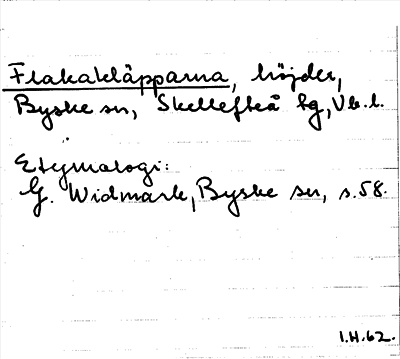 Flakakläpparna, höjder,
Byske sn, Skellefteå tg, Vb. l.
Etymologi:
G. Widmark, Byske sn, s. 58.
I.H.62.